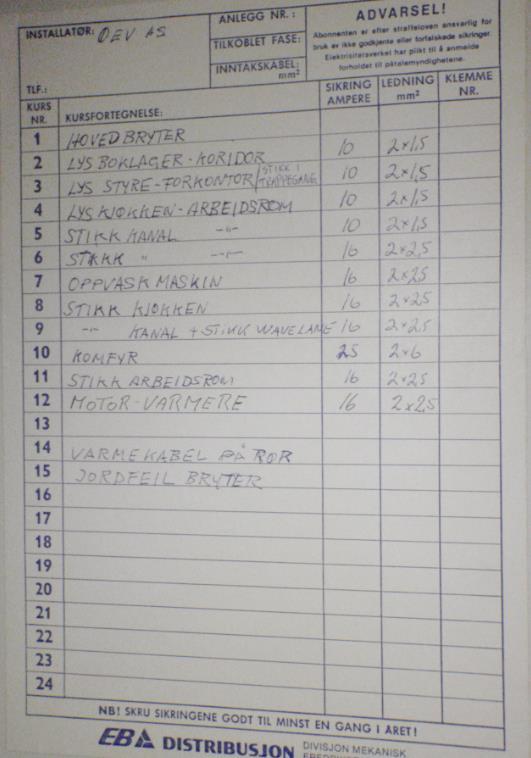 INSTALLATØR: OEV AS
ANLEGG NR.:
TILKOBLET FASE:
INNTAKSKABEL: mm²
ADVARSEL!
Abonnenten er efter straffeloven ansvarlig for
bruk av ikke godkjente eller forfalskede sikringer.
Elektrisitetsverket har plikt til å anmelde
forholdet til påtalemyndighetene.
TLF.:
KURS NR. KURSFORTEGNELSE: SIKRING AMPERE LEDNING mm² KLEMME NR.
1 HOVEDBRYTER
2 LYS BOKLAGER-KORIDOR 10 2×1,5
3 LYS STYRE-FORKONTOR/STIKK I TRAPPEGANG 10 2×1,5
4 LYS KJØKKEN-ARBEIDSROM 10 2×1,5
5 STIKK KANAL -"- 10 2×1,5
6 STIKK " -"- 16 2×2,5
7 OPPVASK MASKIN 16 2×2,5
8 STIKK KJØKKEN 16 2×2,5
9 -"- KANAL + STIKK WAVELANE 16 2×2,5
10 KOMFYR 25 2×6
11 STIKK ARBEIDSROM 16 2×2,5
12 MOTOR-VARMERE 16 2×2,5
13
14 VARMEKABEL PÅ RØR
15 JORDFEIL BRYTER
16
17
18
19
20
21
22
23
24
NB! SKRU SIKRINGENE GODT TIL MINST EN GANG I ÅRET!
EBA DISTRIBUSJON DIVISJON MEKANISK